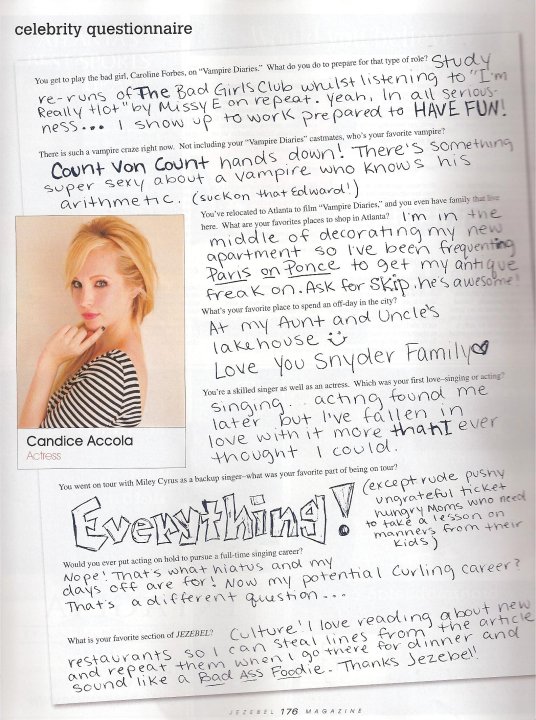 celebrity questionnaire
You get to play the bad girl, Caroline Forbes, on "Vampire Diaries." What do you do to prepare for that type of role? Study
re-runs of The Bad Girls Club whilst listening to "I'm
Really Hot" by Missy E on repeat. Yeah, In all serious-
ness... I show up to work prepared to HAVE FUN!
There is such a vampire craze right now. Not including your "Vampire Diaries" castmates, who's your favorite vampire?
Count Von Count hands down! There's something
super sexy about a vampire who knows his
arithmetic. (suck on that Edward!)
You've relocated to Atlanta to film "Vampire Diaries," and you even have family that live
here. What are your favorites places to shop in Atlanta? I'm in the
middle of decorating my new
apartment so I've been frequenting
Paris on Ponce to get my antique
freak on. Ask for Skip. he's awesome!
What's your favorite place to spend an off-day in the city?
At my Aunt and Uncle's
lakehouse
Love you Snyder Family
You're a skilled singer as well as an actress. Which was your first love–singing or acting?
singing... acting found me
later but I've fallen in
love with it more than I ever
thought I could.
Candice Accola
Actress
You went on tour with Miley Cyrus as a backup singer–what was your favorite part of being on tour?
Everything!
(except rude pushy
ungrateful ticket
hungry Moms who need
to take a lesson on
manners from their
kids)
Would you ever put acting on hold to pursue a full-time singing career?
Nope! That's what hiatus and my
days off are for! Now my potential curling career?
That's a different question...
What is your favorite section of JEZEBEL? Culture! I love reading about new
restaurants so I can steal lines from the article
and repeat them when I go there for dinner and
sound like a Bad Ass Foodie. Thanks Jezebel!
JEZEBEL 176 MAGAZINE